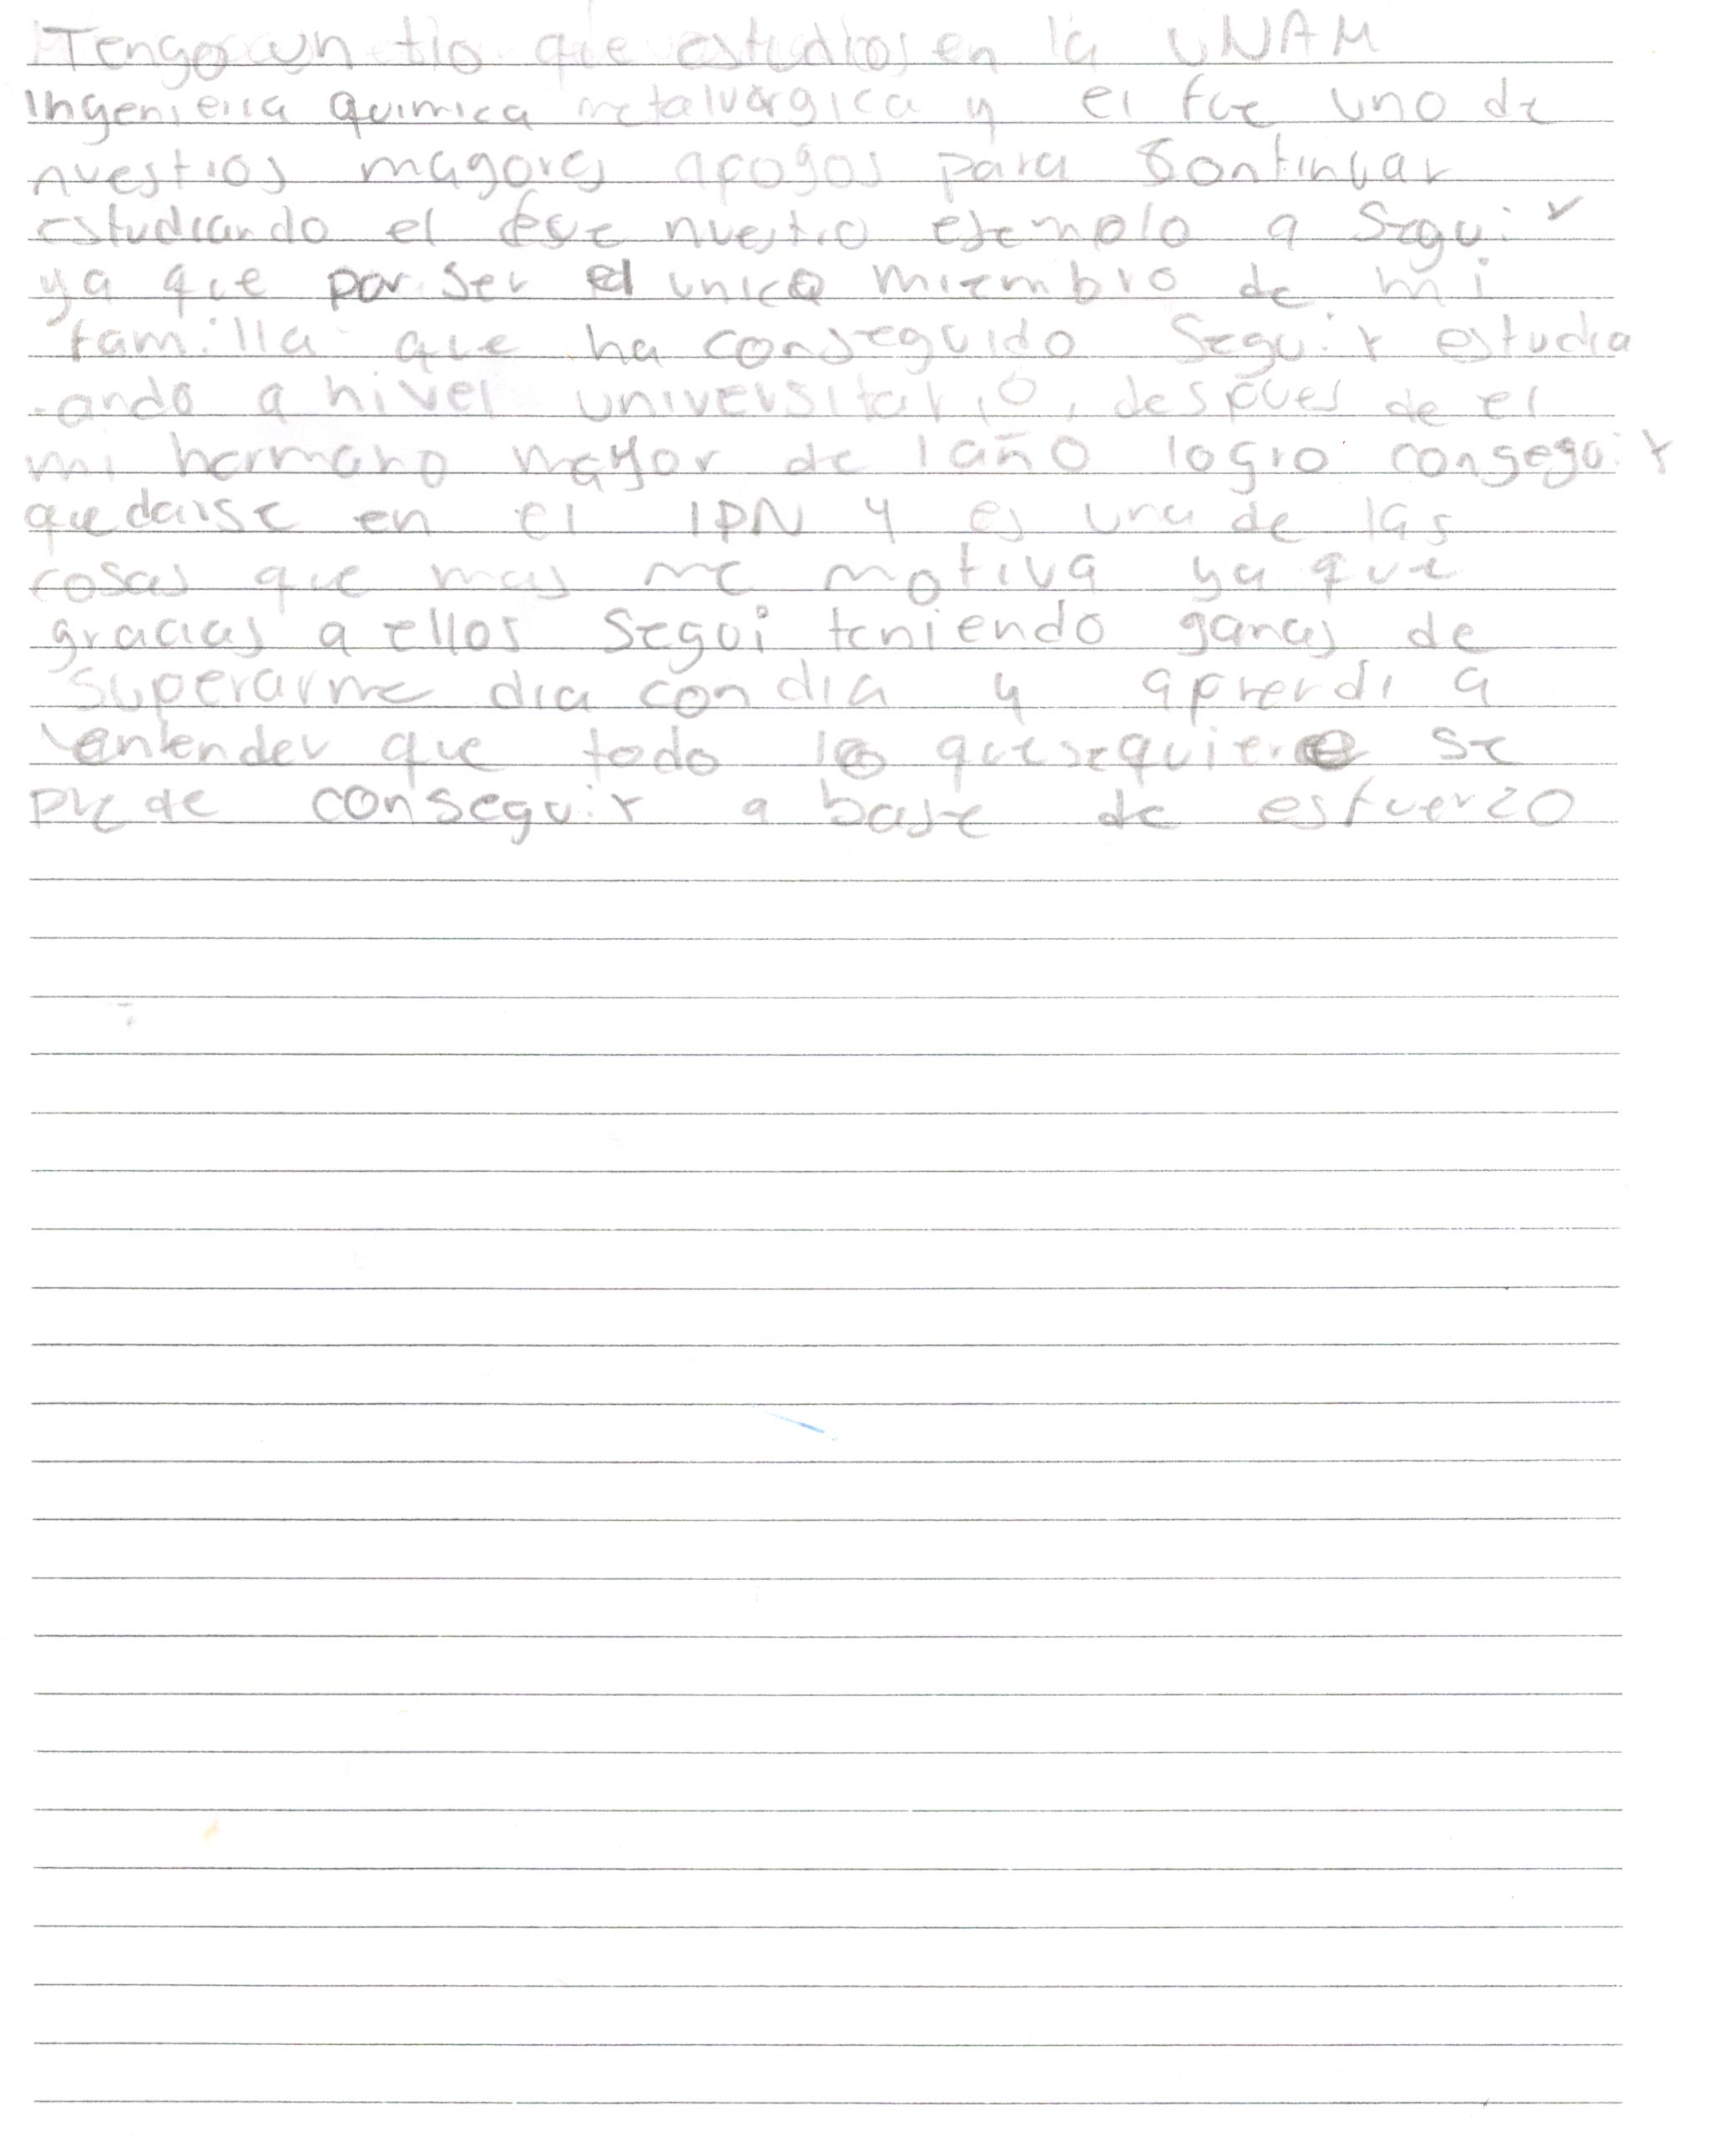 Tengo un tio que estudios en la UNAM
Ingenieria quimica metalurgica y el fue uno de
nuestros mayores apoyos para continuar
estudiando el fue nuestro ejemplo a seguir
ya que por ser el unico miembro de mi
familia que ha conseguido seguir estudia
-ando a nivel universitario, despues de el
mi hermano mayor de 1 año logro conseguir
quedarse en el IPN y es una de las
cosas que mas me motiva ya que
gracias a ellos segui teniendo ganas de
superarme dia con dia y aprendi a
entender que todo lo que se quiere se
puede conseguir a base de esfuerzo